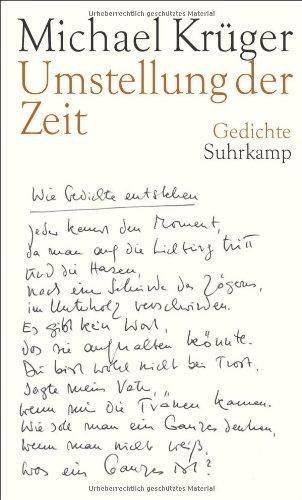 Urheberrechtlich geschütztes Material
Michael Krüger
Umstellung der
Zeit
Gedichte
Suhrkamp
Wie Gedichte entstehen
Jeder kennt den Moment,
da man auf die Lichtung tritt
und die Hasen,
nach einer Sekunde des Zögerns,
im Unterholz verschwinden.
Es gibt kein Wort,
das sie aufhalten könnte.
Du bist wohl nicht bei Trost,
sagte mein Vater,
wenn mir die Tränen kamen.
Wie soll man ein Ganzes denken,
wenn man nicht weiß,
was ein Ganzes ist?
Urheberrechtlich geschütztes Material